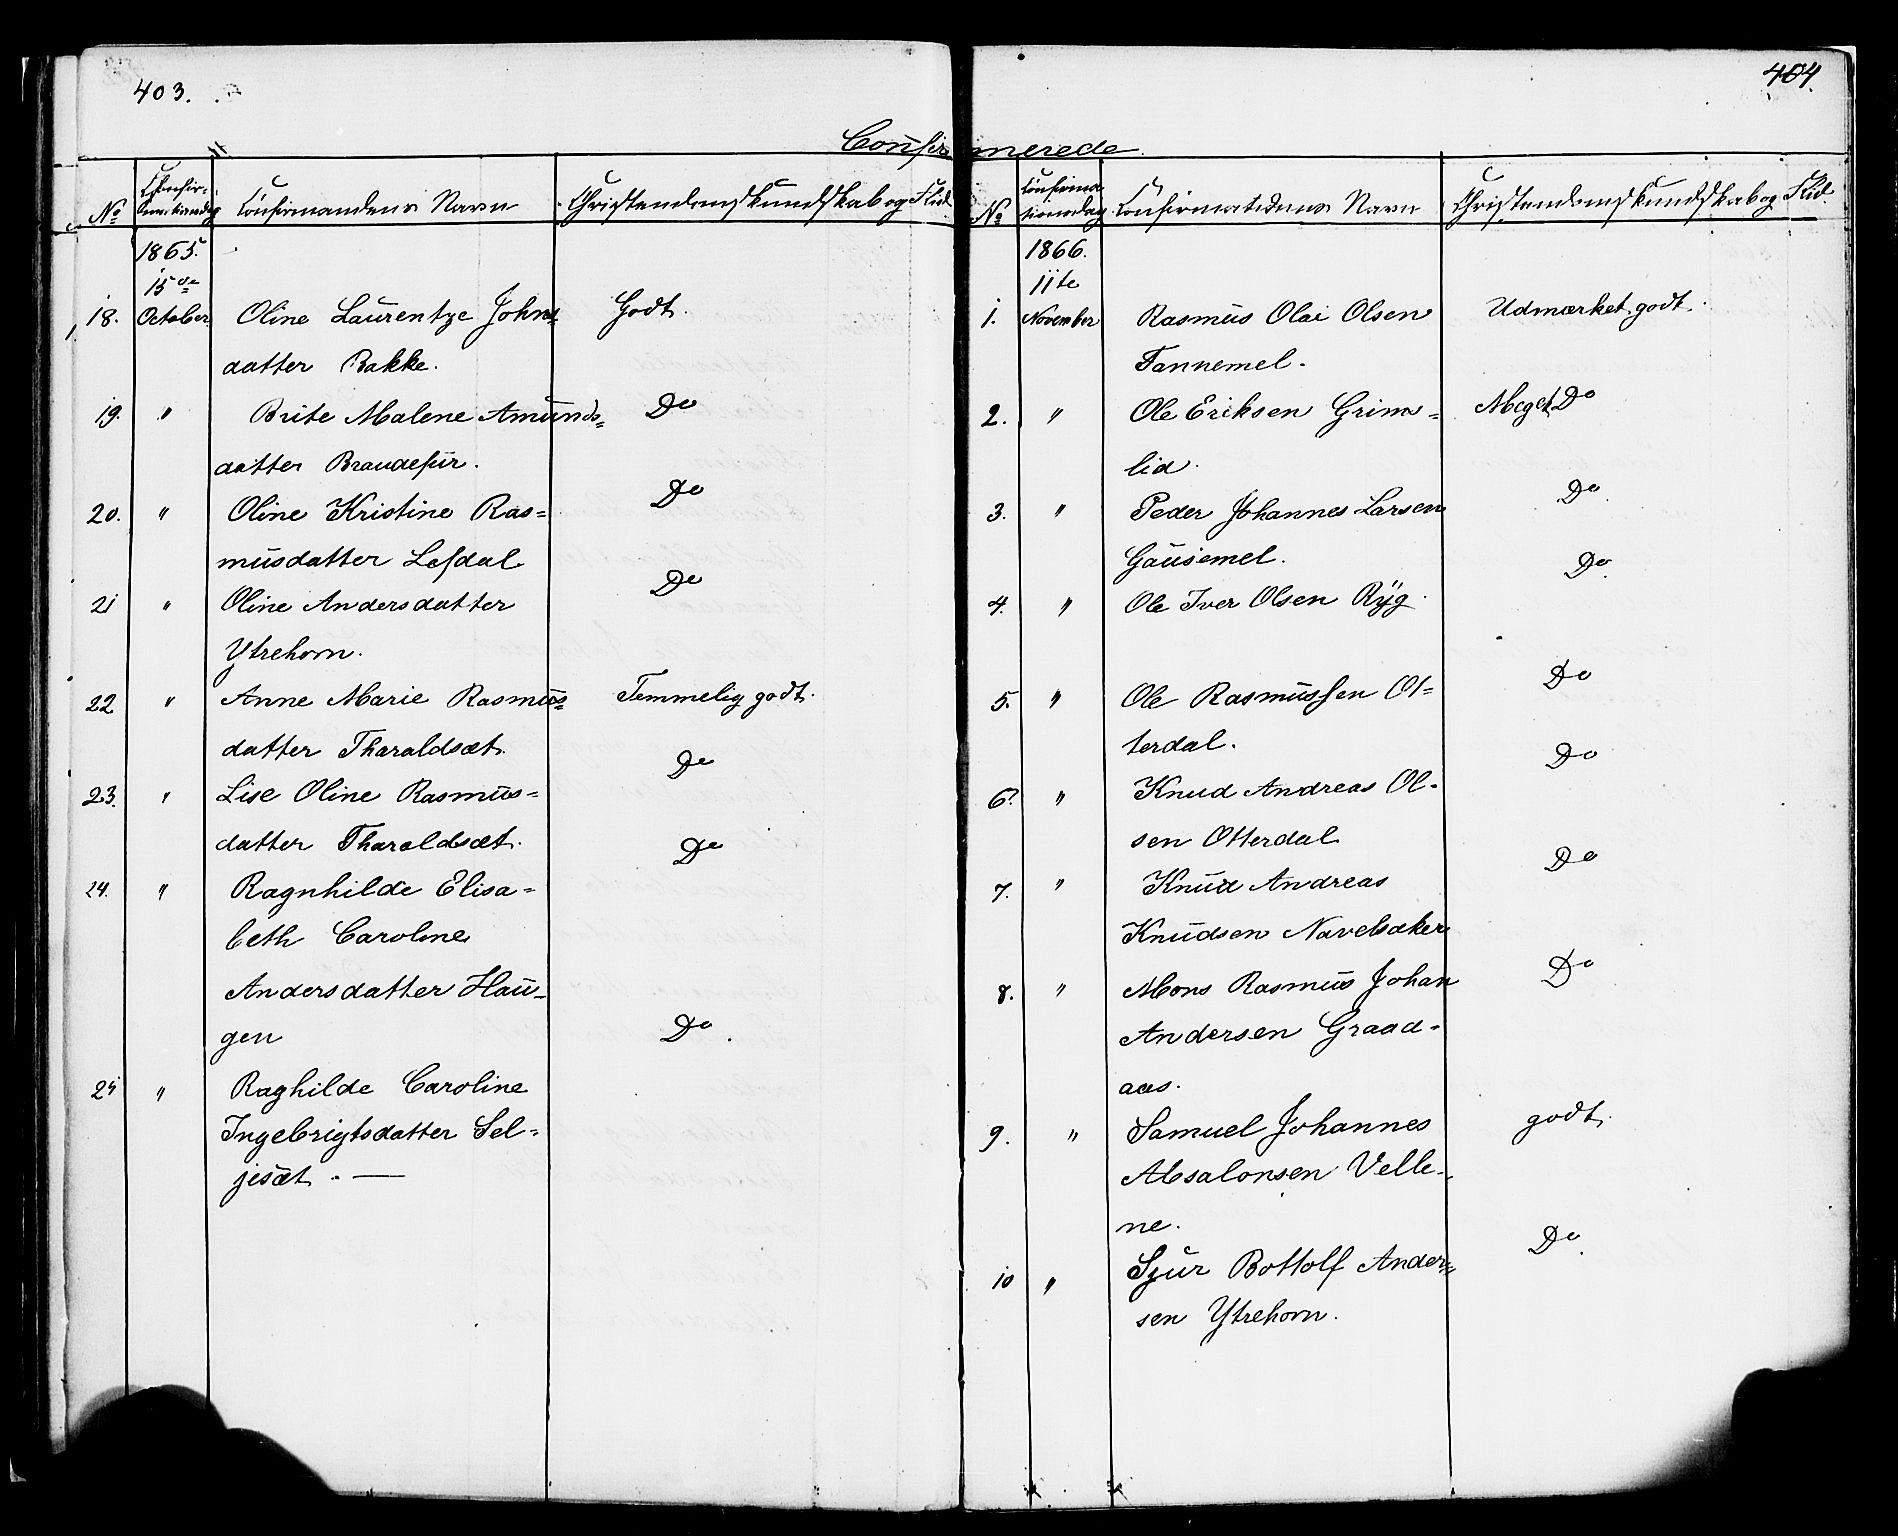 403.
404.
Confirmerede.
No
Confir-
mationsdag
Confirmandens Navn
Christendomskundskab og Flid
1865.
15de
18. October Oline Laurentze Johns= Godt.
datter Bakke.
19. " Brite Malene Amunds= Do
datter Brandefur.
20. " Oline Kristine Ras= Do
musdatter Lefdal
21 " Oline Andersdatter Do
Ytrehorn.
22 " Anne Marie Rasmus= Temmelig godt.
datter Tharaldsæt.
23. " Lise Oline Rasmus= Do
datter Tharaldsæt.
24. " Ragnhilde Elisa= Do
beth Caroline
Andersdatter Hau=
gen
25 " Raghilde Caroline Do.
Ingebrigtsdatter Sel=
jesæt. —
No
Confirma
tionsdag
Confirmandens Navn
Christendomskundskab og Flid.
1866.
11te
1. November Rasmus Olai Olsen Udmærket godt.
Tannemel.
2. " Ole Eriksen Grims= Meget Do
lid.
3. " Peder Johannes Larsen Do.
Gausemel.
4. " Ole Iver Olsen Ryg. Do.
5. " Ole Rasmussen Ot= Do
terdal.
6. " Knud Andreas Ol= Do
sen Otterdal
7. " Knud Andreas Do
Knudsen Navelsaker
8. " Mons Rasmus Johan Do
Andersen Graad=
aas.
9. " Samuel Johannes godt.
Absalonsen Velle=
ne.
10 " Sjur Bottolf Ander= Do.
sen Ytrehorn.